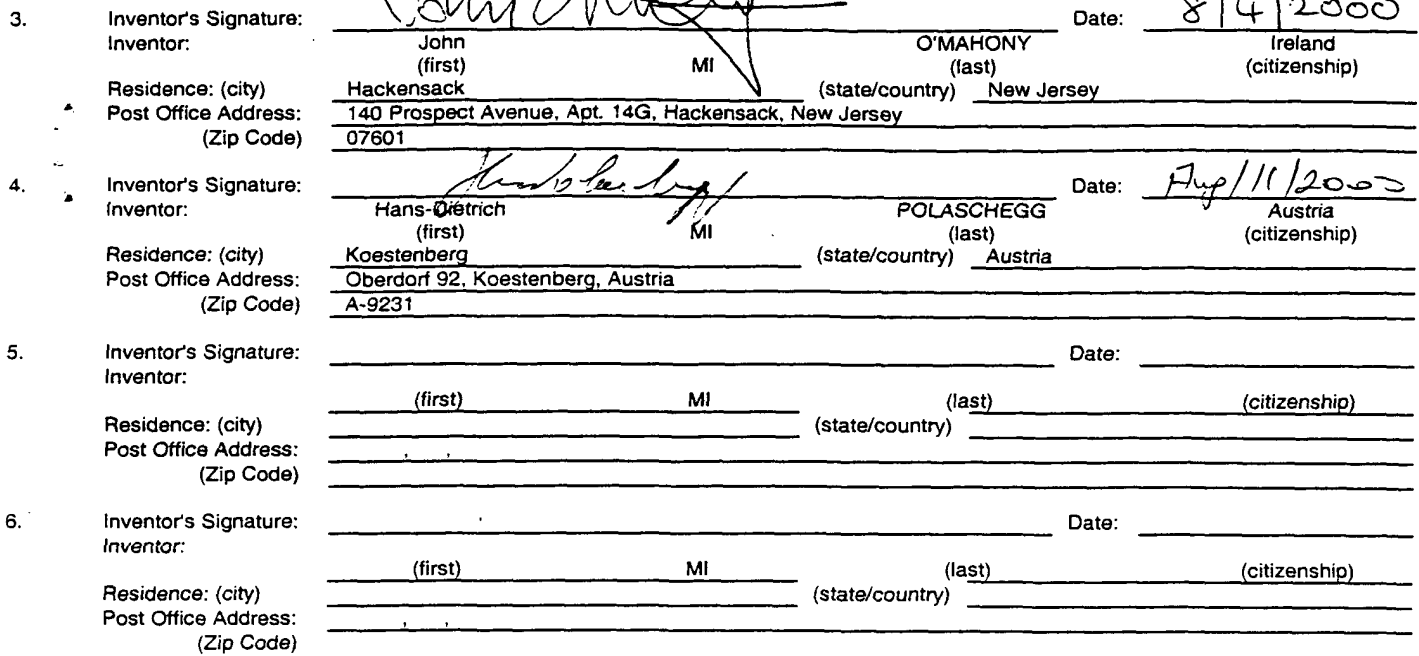 3. Inventor's Signature: John O'Mahony Date: 8/4/2000
Inventor: John O'MAHONY Ireland
(first) MI (last) (citizenship)
Residence: (city) Hackensack (state/country) New Jersey
Post Office Address: 140 Prospect Avenue, Apt. 14G, Hackensack, New Jersey
(Zip Code) 07601
4. Inventor's Signature: Date: Aug/11/2000
Inventor: Hans-Dietrich POLASCHEGG Austria
(first) MI (last) (citizenship)
Residence: (city) Koestenberg (state/country) Austria
Post Office Address: Oberdorf 92, Koestenberg, Austria
(Zip Code) A-9231
5. Inventor's Signature: Date:
Inventor:
(first) MI (last) (citizenship)
Residence: (city) (state/country)
Post Office Address:
(Zip Code)
6. Inventor's Signature: Date:
Inventor:
(first) MI (last) (citizenship)
Residence: (city) (state/country)
Post Office Address:
(Zip Code)